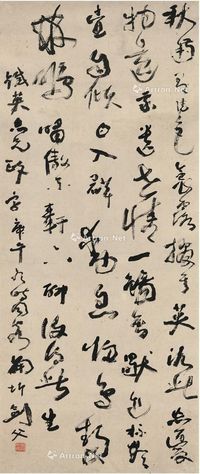 秋菊有佳色裛露掇其英汎此忘憂
物遠我遺世情一觴雖獨進杯盡
壺自傾日入群動息歸鳥趨
林鳴嘯傲東軒下聊復得此生
鐵英 兄政字庚午 劍父
Artron.Net